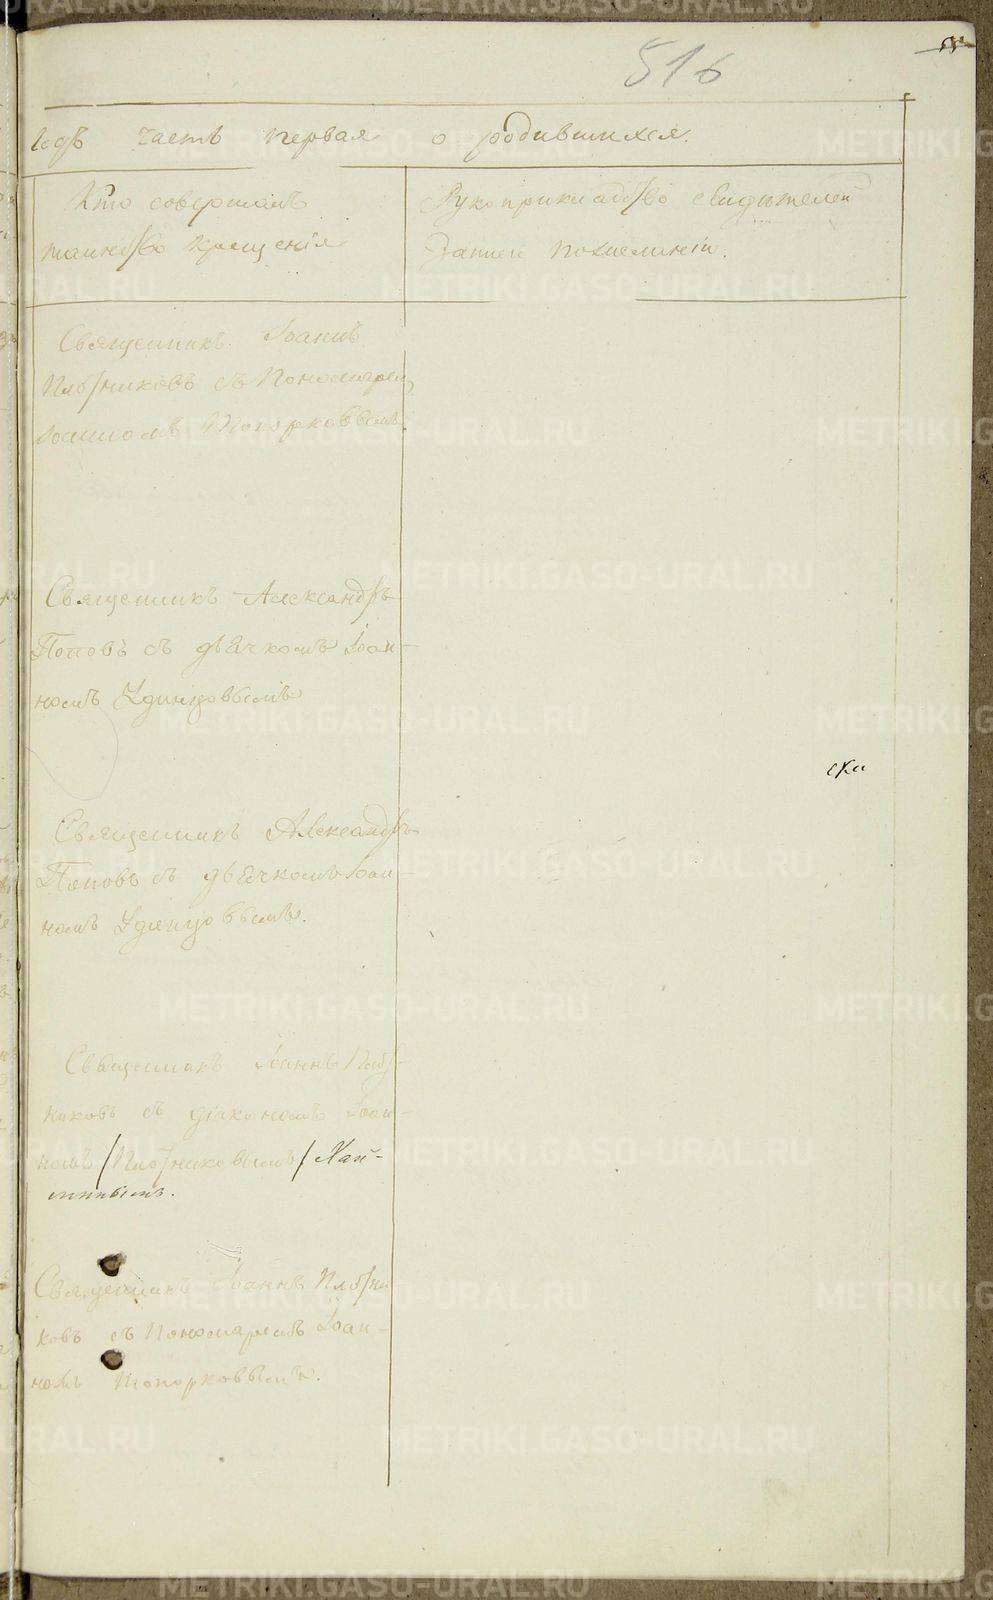 516
годъ часть первая о родившихся.
Кто совершалъ
таинство крещенія
Рукоприкладство свидѣтелей
записи по желанію.
Священникъ Іоаннъ
Плотниковъ съ Пономаремъ
Іоанномъ Топорковымъ
Священникъ Александръ
Поповъ съ дьячкомъ Іоан-
номъ Удинцовымъ
ски
Священникъ Александръ
Поповъ съ дьячкомъ Іоан-
номъ Удинцовымъ.
Священникъ Іоаннъ Плот-
никовъ съ діакономъ Іоан-
номъ /Плотниковымъ/
Священникъ Іоаннъ Плотни
ковъ съ Пономаремъ Іоан-
номъ Топорковымъ.
METRIKI.GASO-URAL.RU